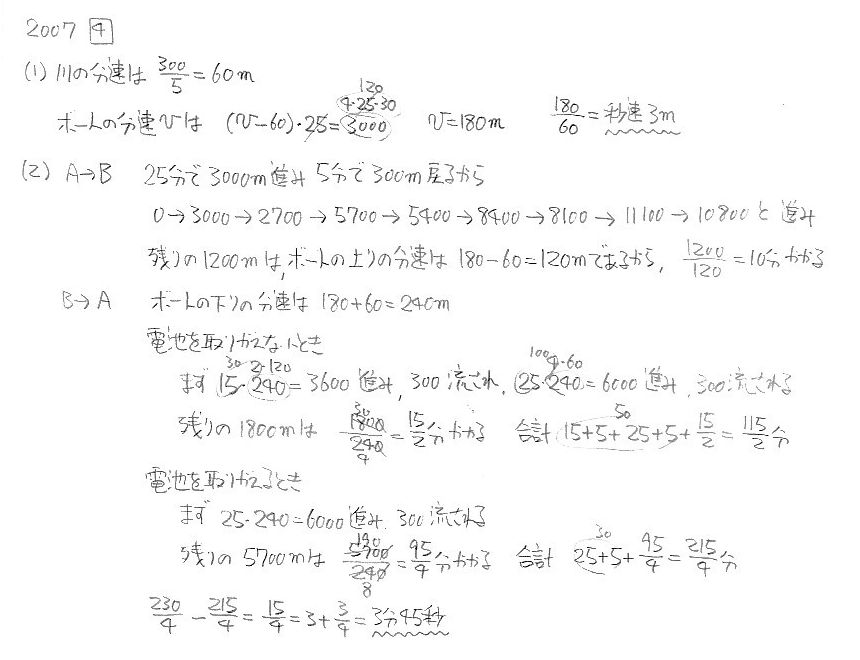 2007 4
(1) 川の分速は 300/5 = 60m
ボートの分速vは (v-60)・25 = 3000 4・25・30 120 v=180m 180/60 = 秒速3m
(2) A→B 25分で3000m進み 5分で300m戻るから
0→3000→2700→5700→5400→8400→8100→11100→10800と進み
残りの1200mは,ボートの上りの分速は 180-60=120mであるから, 1200/120 = 10分かかる
B→A ボートの下りの分速は 180+60=240m
電池を取りかえないとき
30 2・120 100 4・60
まず 15・240=3600 進み, 300 流され, 25・240=6000 進み, 300流される
残りの1800mは 1800/240 30 4 = 15/2 分かかる 合計 15+5+25+5+15/2 50 = 115/2 分
電池を取りかえるとき
まず 25・240=6000進み, 300流される
残りの 5700mは 5700/240 190 8 = 95/4 分かかる 合計 25+5+95/4 30 = 215/4 分
230/4 - 215/4 = 15/4 = 3+3/4 = 3分45秒